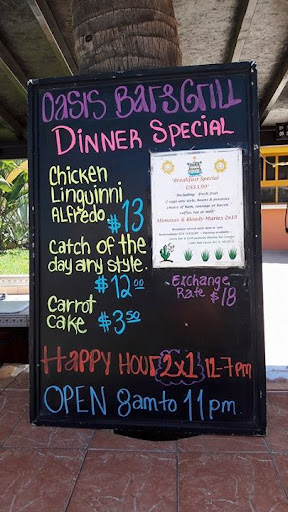 Oasis Bar & Grill
Dinner Special
Chicken
Linguinni
Alfredo $13
Catch of the
day any style
$12.00
Carrot
cake $3.50
Breakfast Special
US$3.99*
Including - fresh fruit
2 eggs any style, beans & potatoes
choice of ham, sausage or bacon
coffee, tea or milk
Mimosas & Bloody Maries 2x1$
Exchange
Rate $18
Happy Hour 2x1 12-7pm
OPEN 8am to 11pm